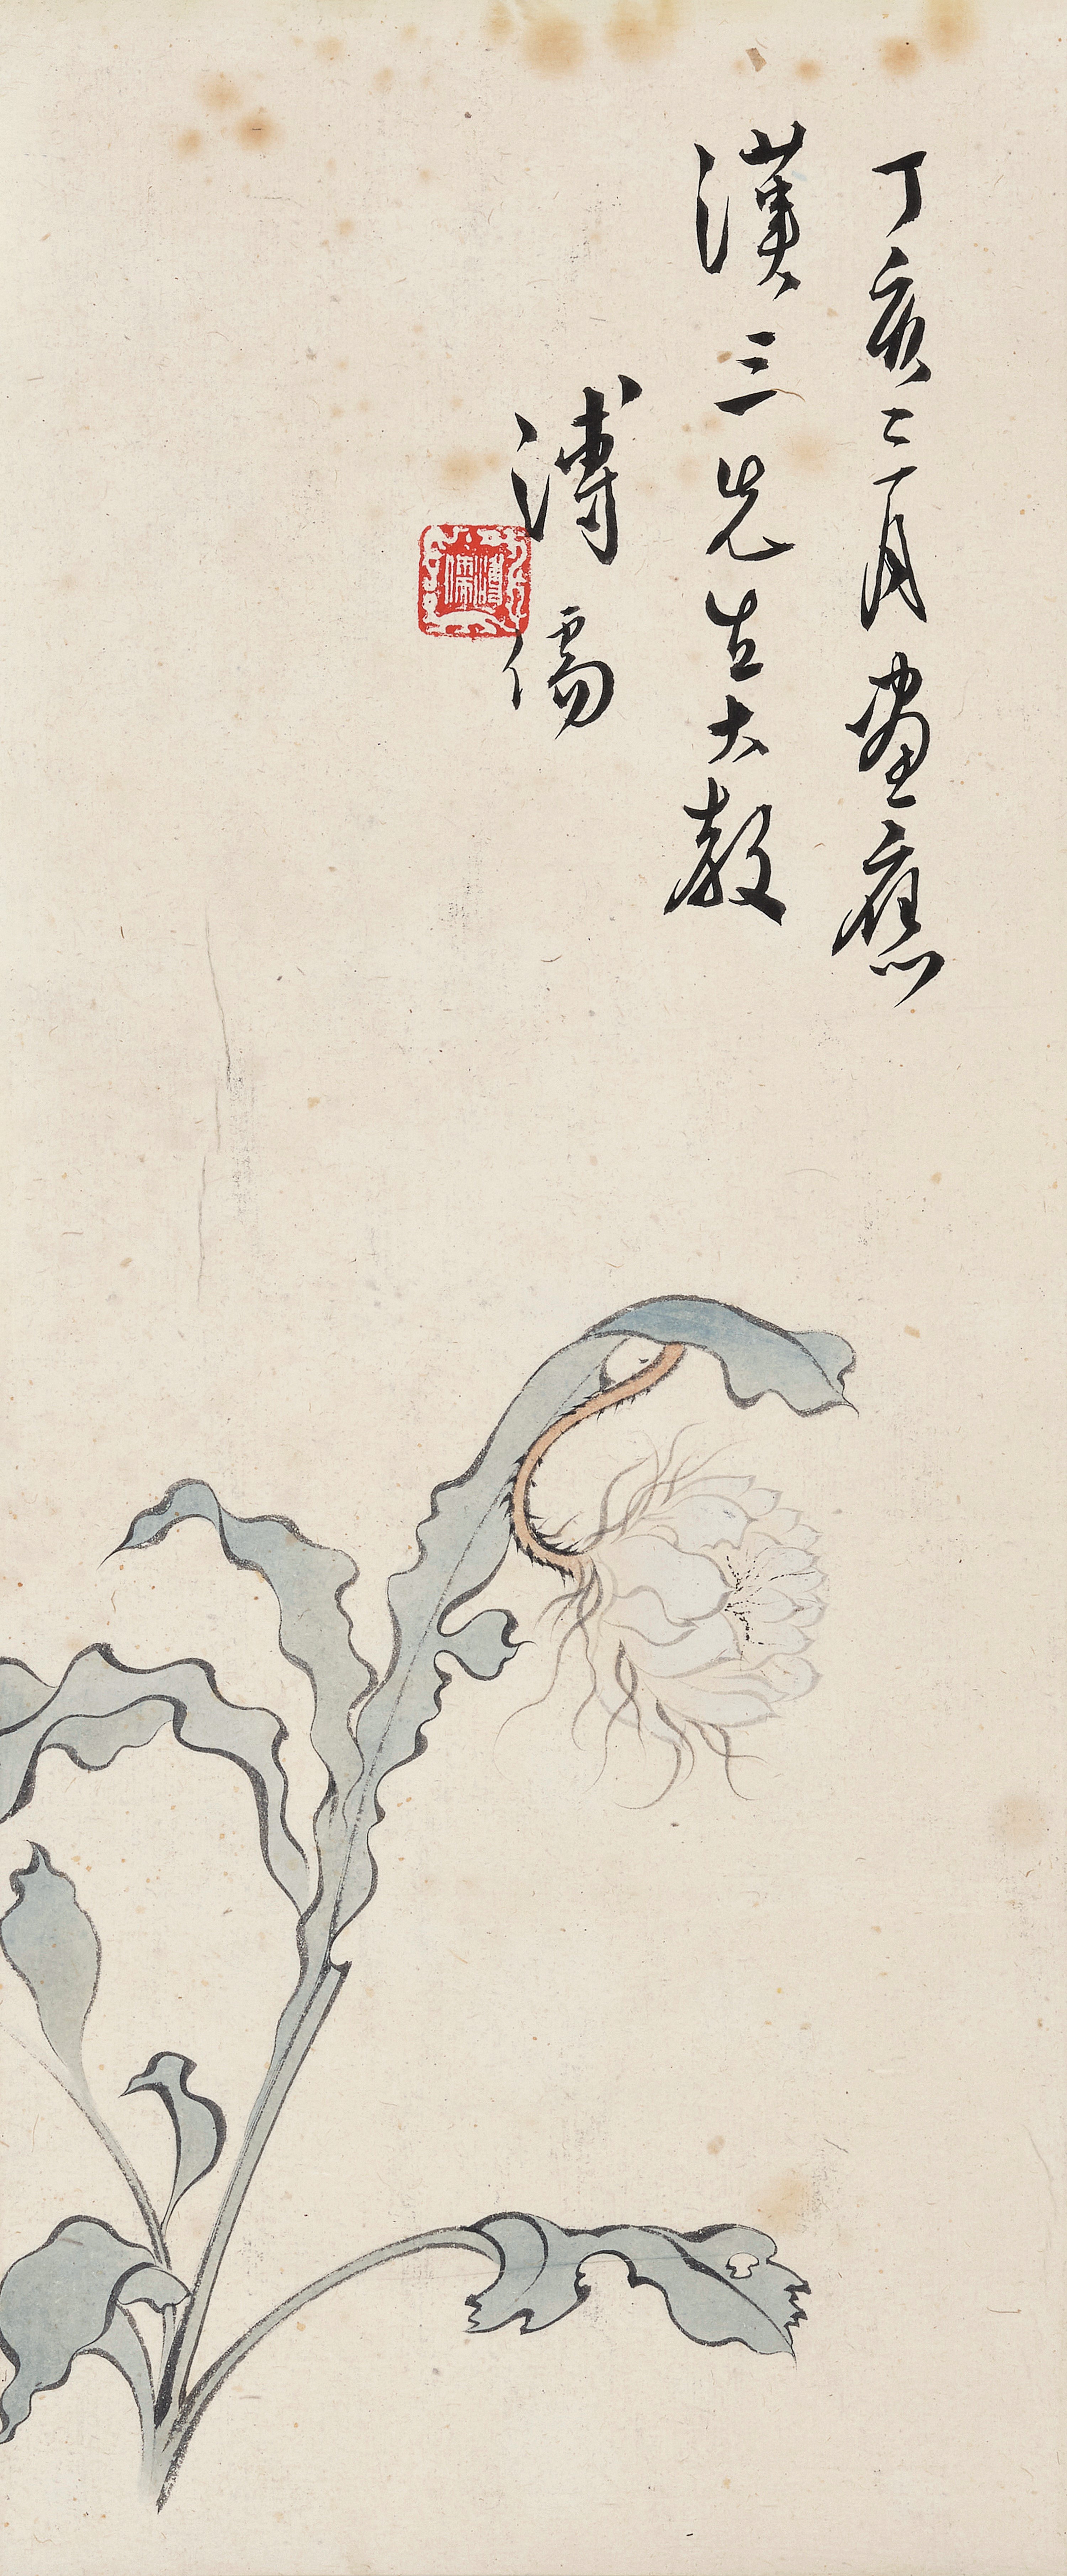 丁亥三月畫應
漢三先生大教
溥儒
溥儒